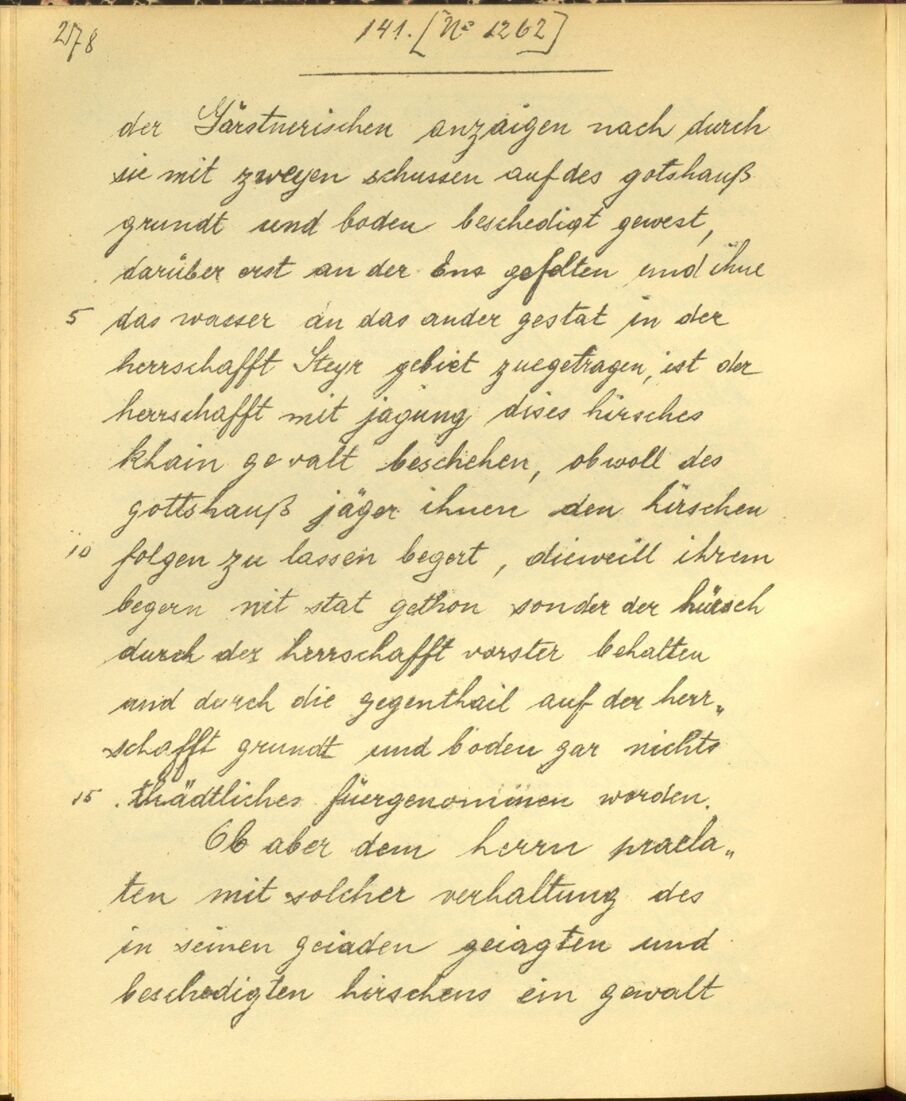 278
141. [Nº 1262]
der Gärstnerischen anzaigen nach durch
sie mit zweyen schussen auf des gotshauß
grundt und boden beschedigt gewest,
darüber erst an der Ens gefelten und ihne
5 das wasser an das ander gestat in der
herrschafft Steyr gebiet zuegetragen, ist der
herrschafft mit jagung dises hirsches
khain gewalt beschehen, obwoll des
gottshauß jäger ihnen den hirschen
10 folgen zu lassen begert, dieweill ihrem
begern nit stat gethon sonder der hürsch
durch der herrschafft vorster behalten
und durch die gegenthail auf der herr„
schafft grundt und boden gar nichts
15 thädtliches füergenommen worden.
Ob aber dem herrn praela„
ten mit solcher verhaltung des
in seinen geiaden geiagten und
beschedigten hirschens ein gewalt